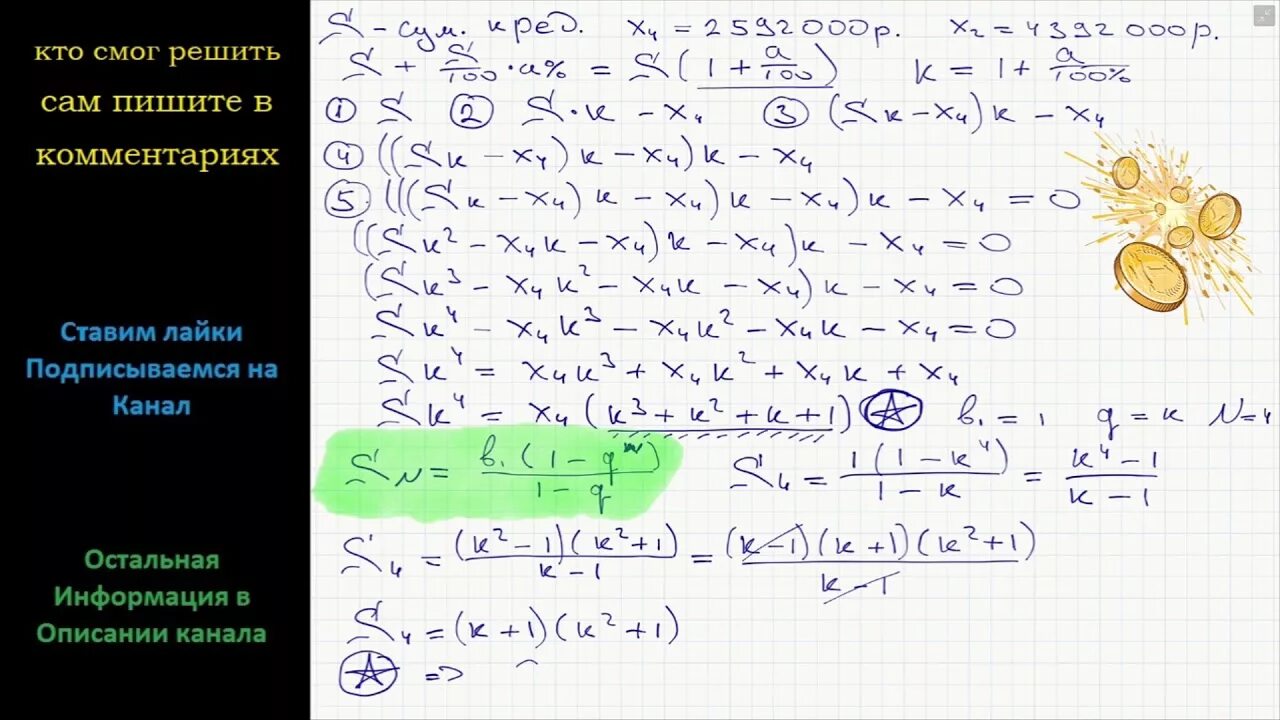 кто смог решить
сам пишите в
комментариях
Ставим лайки
Подписываемся на
Канал
Остальная
Информация в
Описании канала
S – сум. кред. x₄ = 2592000р. x₂ = 4392000р.
S + S/100 · a% = S(1 + a/100) k = 1 + a/100%
① S ② S·k – x₄ ③ (Sk – x₄)k – x₄
④ ((Sk – x₄)k – x₄)k – x₄
⑤ (((Sk – x₄)k – x₄)k – x₄)k – x₄ = 0
((Sk² – x₄k – x₄)k – x₄)k – x₄ = 0
(Sk³ – x₄k² – x₄k – x₄)k – x₄ = 0
Sk⁴ – x₄k³ – x₄k² – x₄k – x₄ = 0
Sk⁴ = x₄k³ + x₄k² + x₄k + x₄
Sk⁴ = x₄(k³ + k² + k + 1) ☆ b₁ = 1 q = k N=4
S_N = b₁(1 – q^N)/(1 – q) S₄ = 1(1 – k⁴)/(1 – k) = (k⁴ – 1)/(k – 1)
S₄ = (k² – 1)(k² + 1)/(k – 1) = (k – 1)(k + 1)(k² + 1)/(k – 1)
S₄ = (k + 1)(k² + 1)
☆ =>